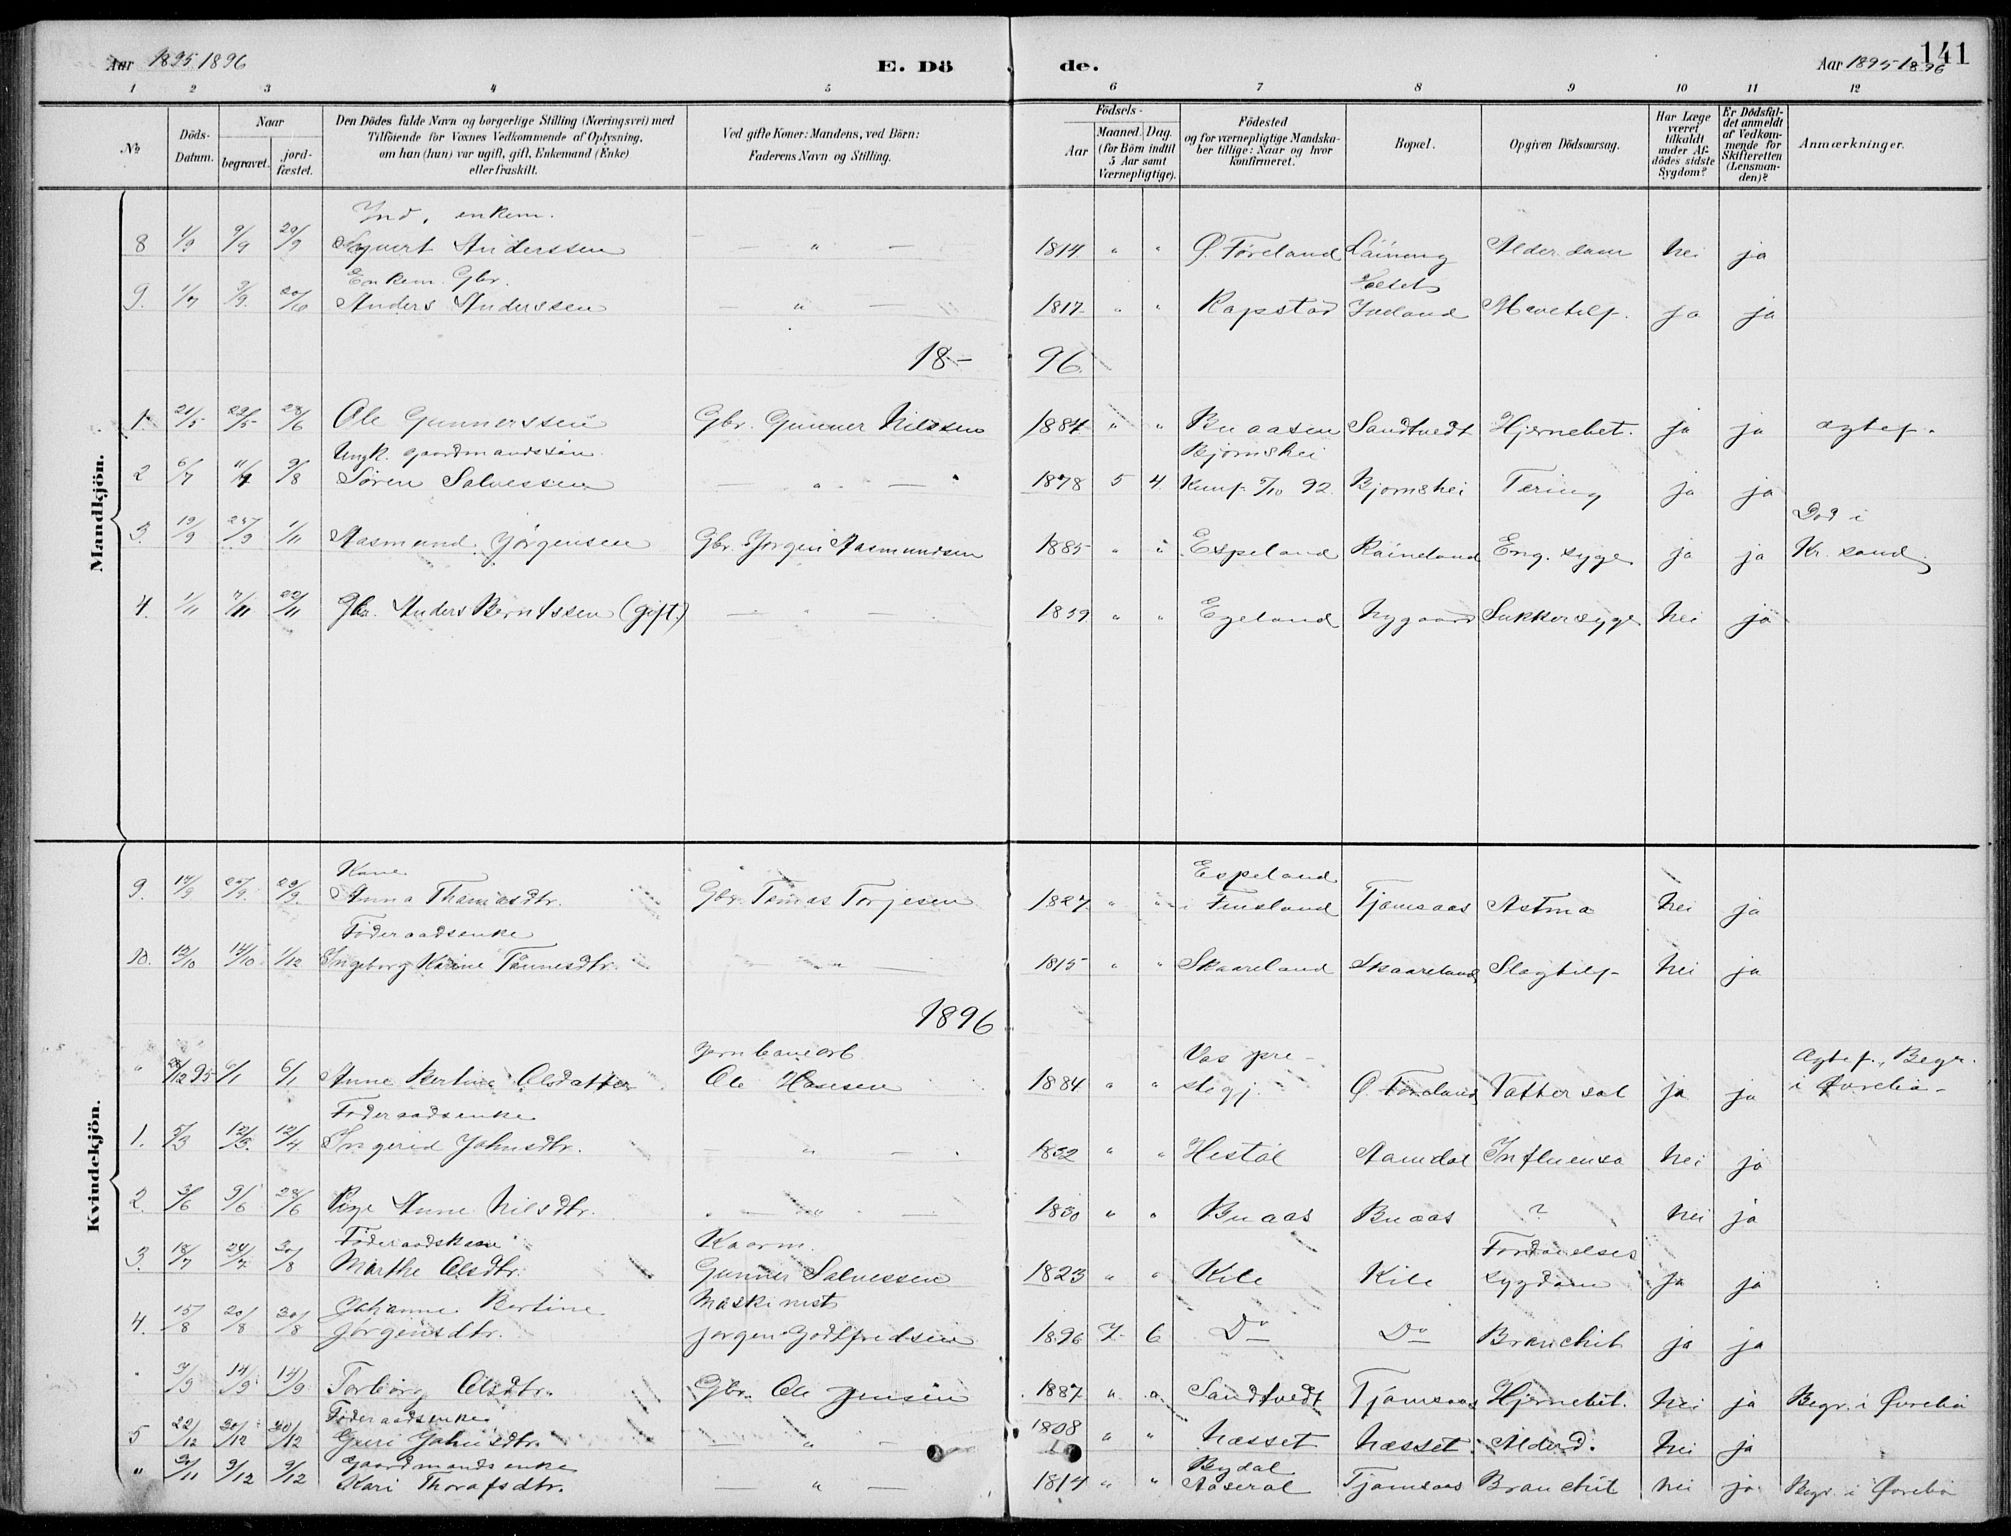 Aar 1895 1896
E. Dö
de.
Aar 1895 1896
141
1 2 3 4 5 6 7 8 9 10 11 12
№
Döds-Datum.
Naar
begravet.
jord-fæstet.
Den Dödes fulde Navn og borgerlige Stilling (Næringsvei) med
Tilföiende for Voxnes Vedkommende af Oplysning,
om han (hun) var ugift, gift, Enkemand (Enke)
eller fraskilt.
Ved gifte Koner: Mandens, ved Börn:
Faderens Navn og Stilling.
Födsels-
Aar
Maaned. Dag.
(for Börn indtil
5 Aar samt
Værnepligtige).
Födested
og for værnepligtige Mandska-
ber tillige: Naar og hvor
konfirmeret.
Bopæl.
Opgiven Dödsaarsag.
Har Læge
været
tilkaldt
under Af-
dödes sidste
Sygdom?
Er Dödsfal-
det anmeldt
af Vedkom-
mende for
Skifteretten
(Lensman-
den)?
Anmærkninger.
Mandkjön.
Ind. enkem.
8 1/9 9/9 29/9 Sigvert Anderssen — " — 1814 " " Ø. Føreland Alderdom nei ja
Enkem. Gbr.
9. Anders Anderssen — " — 1817 " " Rapstad Iveland Mavetilf. ja ja
18-96.
1 21/5 29/5 28/6 Ole Gunnerssen Gbr. Gunner Nilssen 1884 " " Buaasen Sandtvedt Hjernebet. ja ja ægtef.
Ungk. gaardmandssøn Bjørnshei
2 6/7 11/7 9/8 Søren Salvessen — " — 1878 5 4 Kunf. 92. Bjørnshei Tæring ja ja
Død i
3. 19/9 25/9 1/11 Aasmund Jørgensen Gbr. Jørgen Aasmundsen 1885 " " Espeland Eng. syge ja ja Kr. sand.
4. 1/11 7/11 22/11 Gbr. Anders Berntssen (gift.) — " — 1839 " " Egeland Nygaard Sukkersyge nei ja
Kvindekjön.
Kone Espeland
9. 14/9 Anna Thomasdtr. Gbr. Tomas Torjesen 1827 " " i Finsland Tjomsaas Astma nei ja
Føderaadsenke
10. 12/10 14/10 1/12 Ingeborg Karine Tønnesdtr. — " — 1815 " " Skaareland Skaareland Slagtilf. nei ja
1896
Jernbanearb. Vos pre- Ægtef., Begr.
" 28/12 95 6/1 6/1 Anne Bertine Olsdatter Ole Hansen 1884 " " stegj. Ø. Føreland Vattersot ja ja i Øvrebø.
Føderaadsenke
1. 5/3 12/3. 12/4 Ingerid Johnsdtr. — " — 1832 " " Hestøl Aamdal Influensa nei ja
2. 3/6 9/6 28/6 Pige Anne Nilsdtr. — " — 1830 " " Buaas Buaas ? nei ja
Føderaadskone Kaarm. Fordøielses
3. 18/7 24/7 30/8 Marthe Olsdtr. Gunner Salvessen 1823 " " Kile Kile sygdom ja ja
Johanne Bertine Maskinist
4. 15/8 20/8 30/8 Jørgensdtr. Jørgen Godtfredsen 1896 7 6 Do Do Bronchit ja ja
" 7/9 14/9 14/9 Torborg Olsdtr. Gbr. Ole Jensen 1887 " " Sandtvedt Tjomsaas Hjernebet. nei ja Begr. i Øvrebø
Føderaadsenke
5 22/12 30/12 30/12 Guri Johnsdtr. — " — 1808 " " Næsset Næsset Alderd. nei ja
Gaardmandsenke Bydal
" 3/11 9/12 9/12 Kari Thorafsdtr. — " — 1814 " " Aaseral Tjomsaas Bronchit nei ja Begr. i Øvrebø